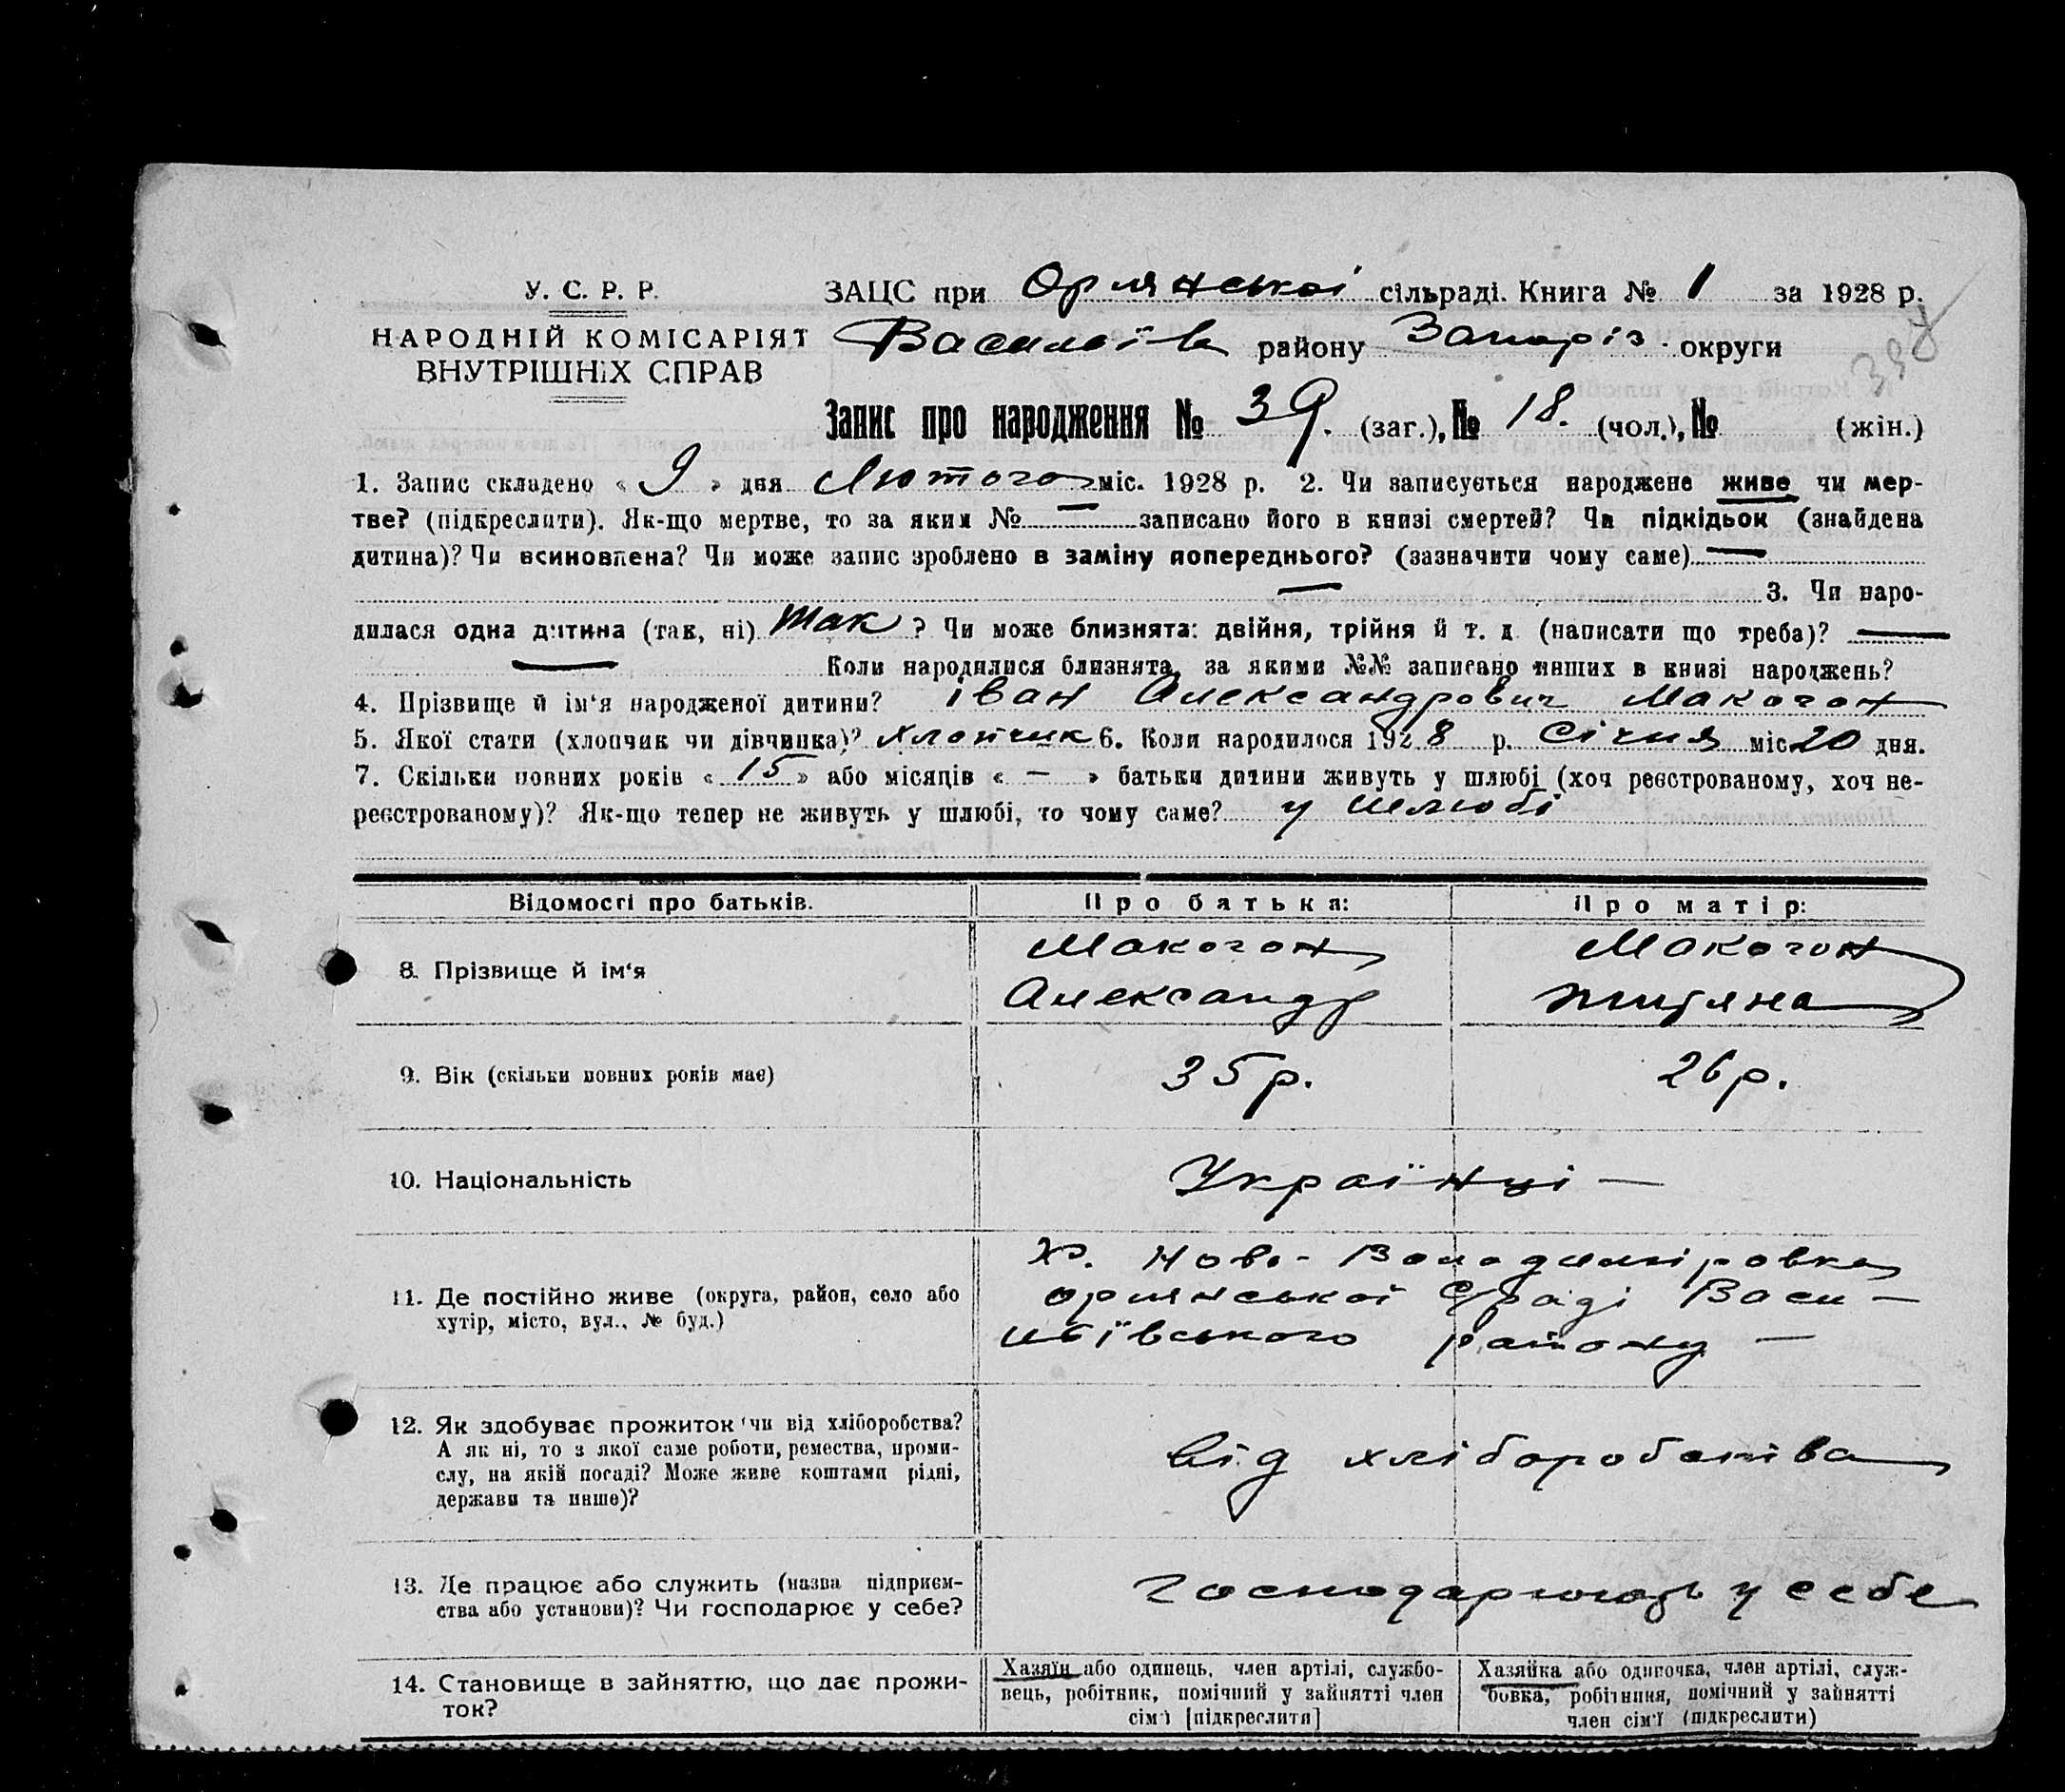 У. С. Р. Р.
НАРОДНІЙ КОМІСАРІЯТ
ВНУТРІШНІХ СПРАВ
ЗАЦС при Орлянської сільраді. Книга № 1 за 1928 р.
Василів району Запоріз. округи
398
Запис про народження № 39. (заг.), № 18. (чол.), № (жін.)
1. Запис складено « 9 » дня Лютого міс. 1928 р. 2. Чи записується народжене живе чи мер-
тве? (підкреслити). Як-що мертве, то за яким № — записано його в книзі смертей? Чи підкідьок (знайдена
дитина)? Чи всиновлена? Чи може запис зроблено в заміну попереднього? (зазначити чому саме) —
— 3. Чи наро-
дилася одна дитина (так, ні) Так ? Чи може близнята: двійня, трійня й т. д. (написати що треба)? —
— Коли народилися близнята, за якими №№ записано инших в книзі народжень?
4. Прізвище й ім'я народженої дитини? Іван Александрович Макогон
5. Якої стати (хлопчик чи дівчинка)? Хлопчик 6. Коли народилося 1928 р. Січня міс 20 дня.
7. Скільки повних років « 15 » або місяців « — » батьки дитини живуть у шлюбі (хоч реєстрованому, хоч не-
реєстрованому)? Як-що тепер не живуть у шлюбі, то чому саме? у шлюбі
Відомості про батьків. Про батька: Про матір:
8. Прізвище й ім'я
Макогон
Александр
Макогон
9. Вік (скільки повних років має) 35 р. 26 р.
10. Національність Українці —
11. Де постійно живе (округа, район, село або
хутір, місто, вул., № буд.)
Х. Ново-Володимировка
Орлянської с/раді Васи-
лівського району —
12. Як здобуває прожиток (чи від хліборобства?
А як ні, то з якої саме роботи, ремества, проми-
слу, на якій посаді? Може живе коштами рідні,
держави та инше)?
від хліборобства
13. Де працює або служить (назва підприєм-
ства або установи)? Чи господарює у себе?
господарюють у себе
14. Становище в зайняттю, що дає прожи-
ток?
Хазяїн або одинець, член артілі, службо-
вець, робітник, помічний у зайнятті член
сім'ї [підкреслити]
Хазяйка або одиночка, член артілі, служ-
бовка, робітниця, помічний у зайнятті
член сім'ї (підкреслити)